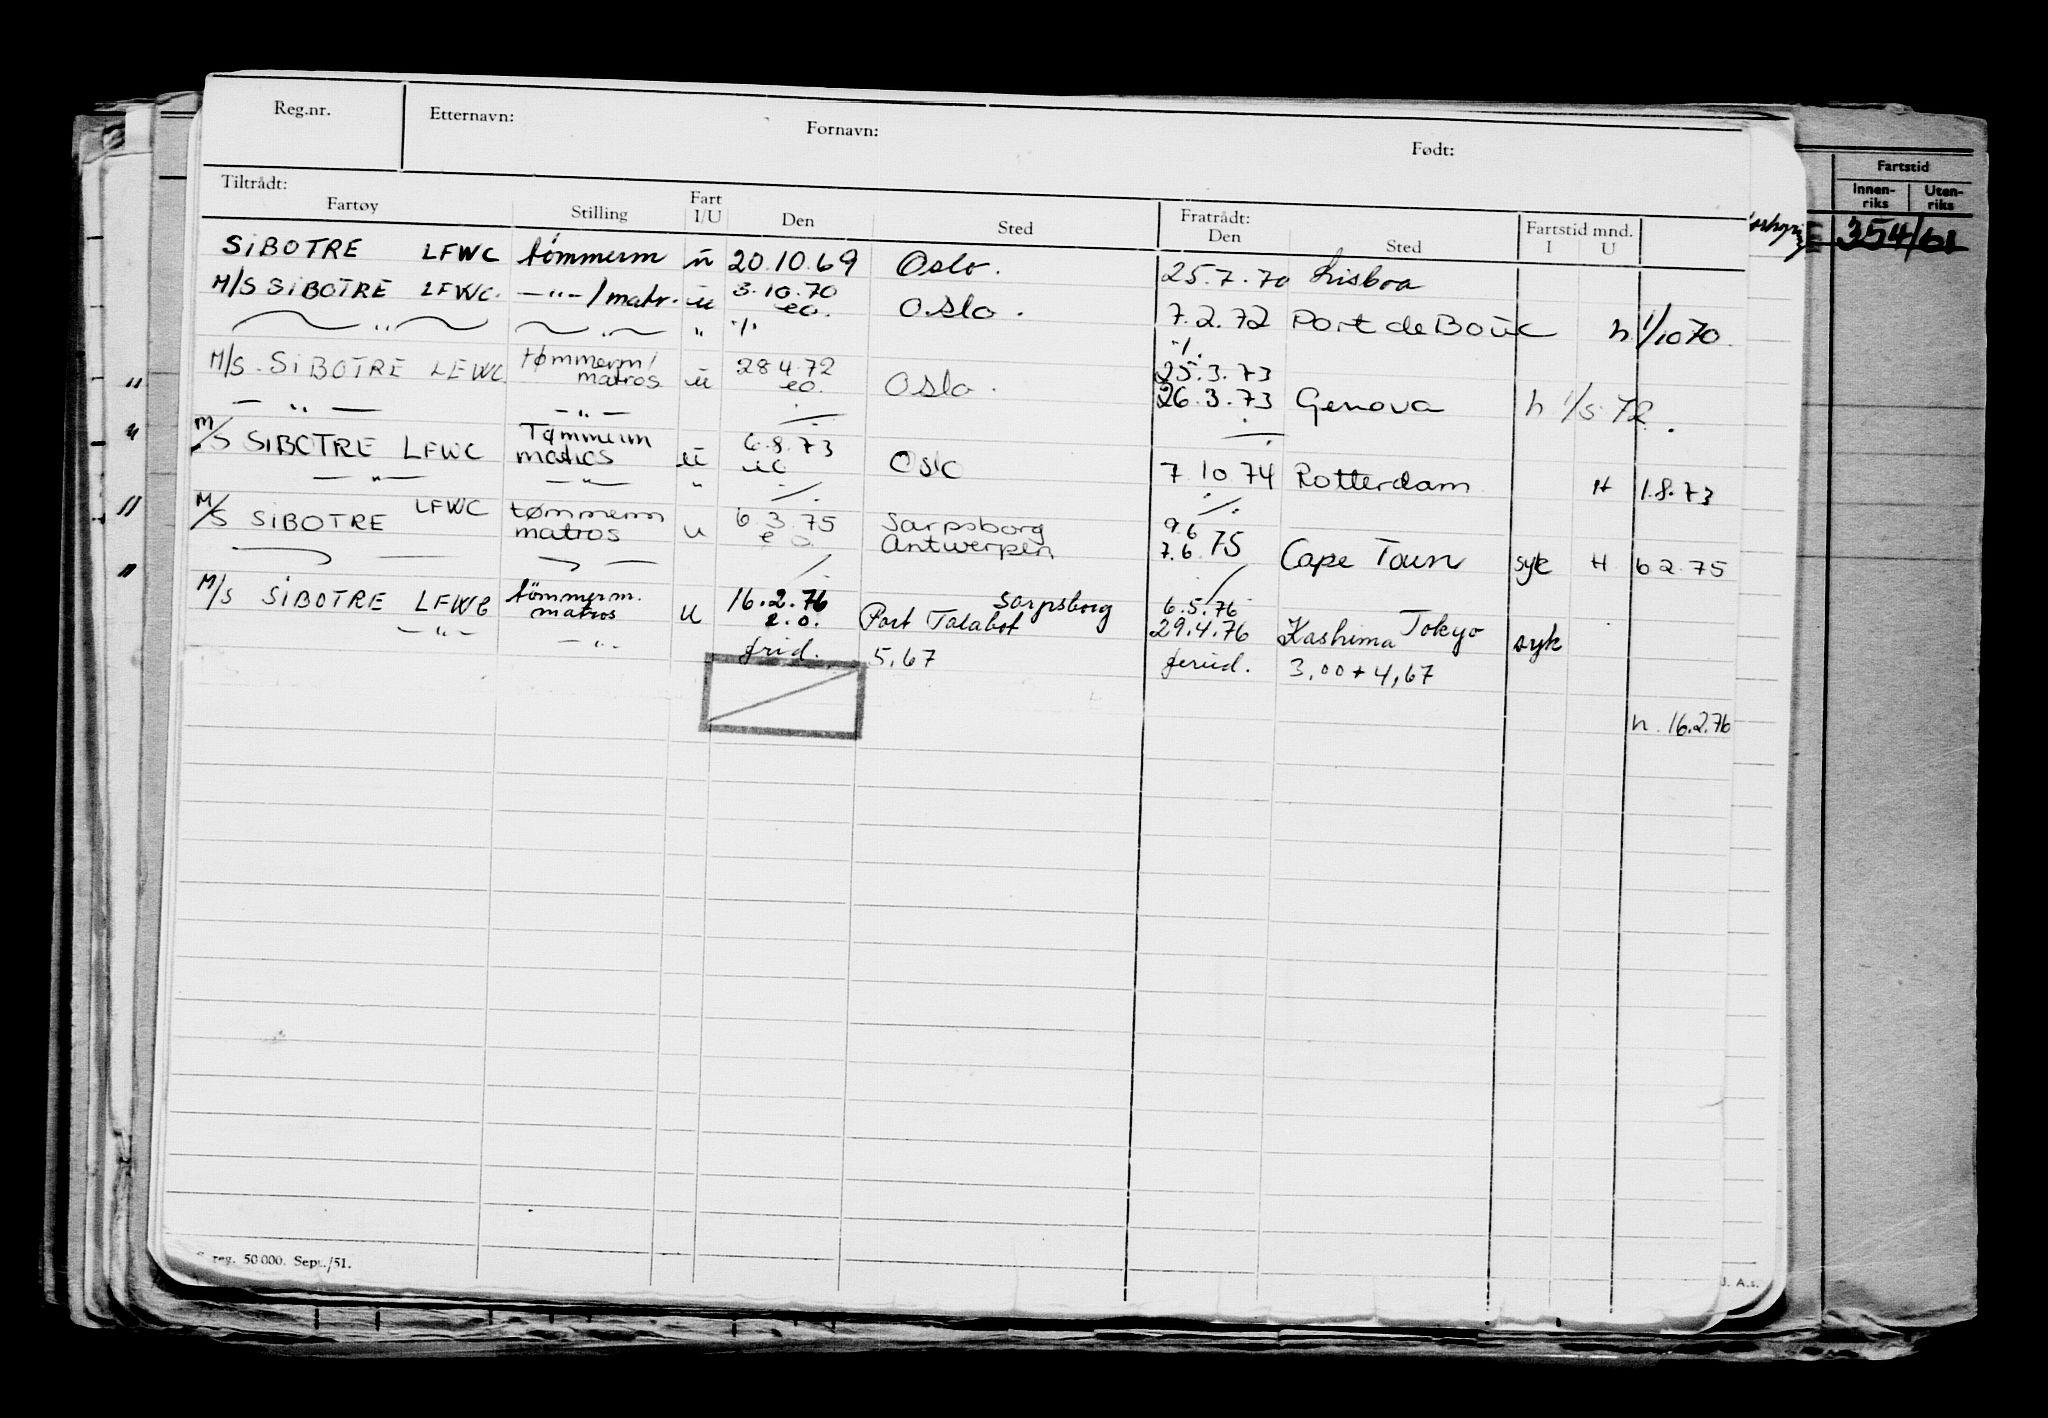 Reg.nr. Etternavn: Fornavn: Født:
Tiltrådt: Fartøy Stilling Fart I/U Den Sted Fratrådt: Den Sted Fartstid mnd. I U
Fartstid
Innen-riks Uten-riks
354/61
SIBOTRE LFWC tömmerm u 20.10.69 Oslo. 25.7.70 Lisboa
M/S SIBOTRE LFWC. —"—/matr. u 3.10.70 eo. Oslo. 7.2.72 Port de Bouc h 1/10 70
" " " ./. ./.
M/S. SIBOTRE LFWC. tømmerm/ matros u 28 4.72 eo. Oslo. 25.3.73
26.3.73 Genova h 1/5 72.
— " — — " — ./. ./.
M/S SIBOTRE LFWC Tømmerm matros u 6.8.73 Oslo 7 10 74 Rotterdam H 1.8.73
— " — — " — " ./. ./.
M/S SIBOTRE LFWC tømmerm matros u 6.3.75 e o. Sarpsborg Antwerpen 9.6 7.6.75 Cape Town syk H 6 2.75
M/S SIBOTRE LFWC tömmerm. matros u 16.2.76 e.o. Sarpsborg 6.5.76 Tokyo
Port Talabot 29.4.76 Kashima syk
— " — — " — frid. 5,67 feriid. 3,00 + 4,67
h. 16.2.76
reg. 50 000. Sept./51.
J. A.s.